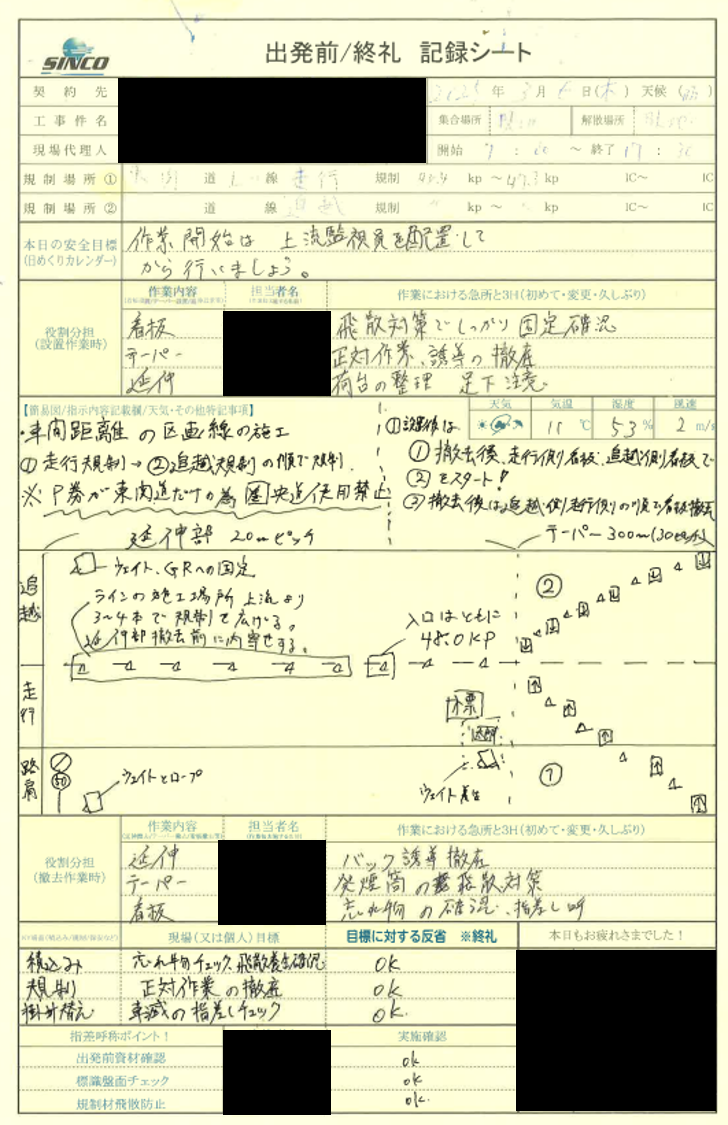 SINCO
出発前/終礼 記録シート
契約先
2025年3月6日(木) 天候(晴)
工事件名
集合場所 解散場所
現場代理人
開始 : 終了 17:30
規制場所① 道 線 走行 規制 kp ~ 47.3 kp IC~ IC
規制場所② 道 線 追越 規制 kp ~ kp IC~ IC
本日の安全目標
(日めくりカレンダー)
作業開始は 上流監視員を配置して
から行いましょう。
役割分担
(設置作業時)
作業内容 担当者名 作業における急所と3H(初めて・変更・久しぶり)
看板 飛散対策でしっかり固定確認
テーパー 正対作業、誘導の徹底
延伸 荷台の整理 足下注意
【簡易図/指示内容記載欄/天気・その他特記事項】
天気 気温 湿度 風速
11℃ 53% 2m/s
・車間距離の区画線の施工
①走行規制→②追越規制の順で規制
※P券が東関道だけの為 圏央道使用禁止
①設置後は
①撤去後、走行側看板、追越側看板で
②をスタート!
②撤去後は追越側走行側の順で看板撤去
延伸部 20mピッチ
テーパー300m(30ピッチ)
追越
ウェイト、GRへの固定
ラインの施工場所 上流より
3~4本で規制して広げる。
延伸部撤去前に内寄せする。
入口はともに
48.0KP
②
走行
標
路肩
50
ウェイトとロープ
ウェイト養生
①
役割分担
(撤去作業時)
作業内容 担当者名 作業における急所と3H(初めて・変更・久しぶり)
延伸 バック誘導徹底
テーパー 発煙筒の飛散対策
看板 忘れ物の確認、指差し呼
現場(又は個人)目標 目標に対する反省 ※終礼 本日もお疲れさまでした!
積込み 忘れ物チェック、飛散養生確認 OK
規制 正対作業の徹底 OK
掛け替え 車減の指差しチェック OK.
指差呼称ポイント! 実施確認
出発前資材確認 ok
標識盤面チェック ok
規制材飛散防止 ok.